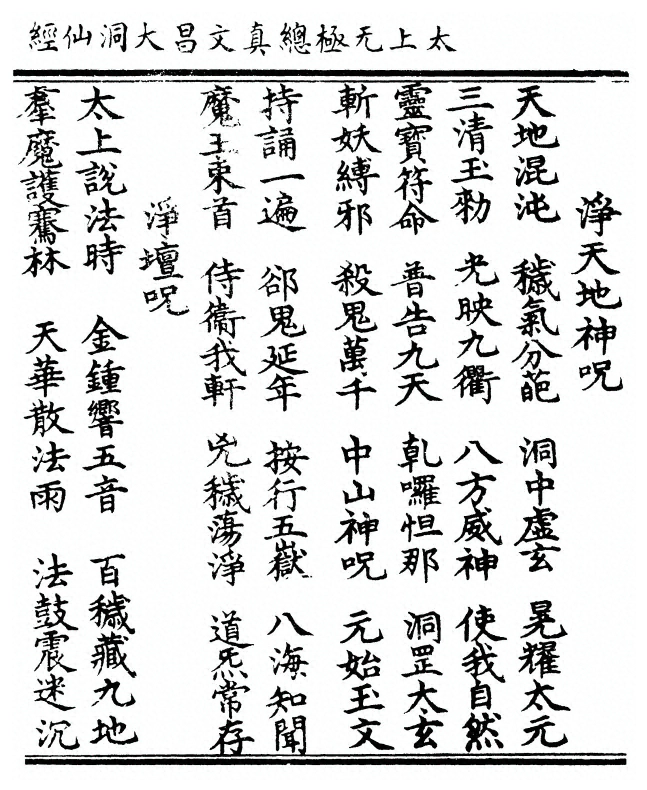 太上无極總真文昌大洞仙經
淨天地神呪
天地混沌 穢氣分葩 洞中虛玄 晃耀太元
三清玉勑 光映九衢 八方威神 使我自然
靈寶符命 普告九天 乹囉怛那 洞罡太玄
斬妖縛邪 殺鬼萬千 中山神呪 元始玉文
持誦一遍 郤鬼延年 按行五嶽 八海知聞
魔王束首 侍衞我軒 兇穢蕩淨 道炁常存
淨壇呪
太上說法時 金鍾響五音 百穢藏九地
羣魔護騫林 天華散法雨 法鼓震迷沉